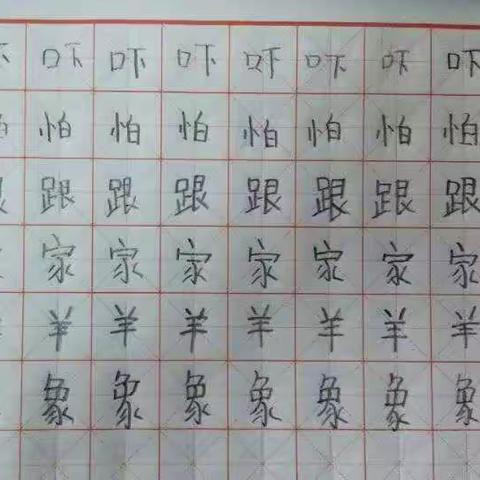 吓 吓 吓 吓 吓 吓 吓 吓
怕 怕 怕 怕 怕 怕 怕 怕
跟 跟 跟 跟 跟 跟 跟 跟
家 家 家 家 家 家 家
羊 羊 羊 羊 羊 羊 羊
象 象 象 象 象 象 象